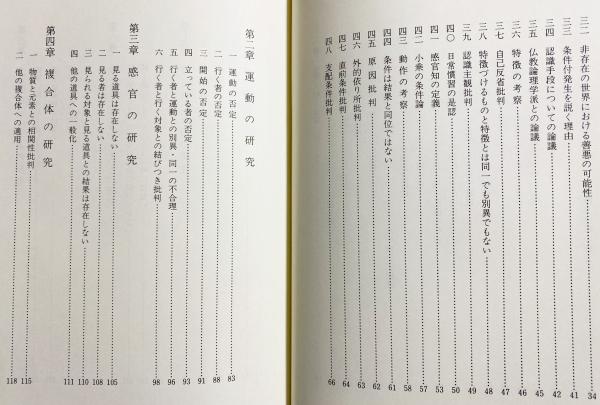 三二 非存在の世界における善悪の可能性…………34
三三 条件付発生を説く理由…………41
三四 認識手段についての論議…………42
三五 仏教論理学派との論議…………45
三六 特徴の考察…………46
三七 自己反省批判…………47
三八 特徴づけるものと特徴とは同一でも別異でもない…………48
三九 認識主観批判…………49
四〇 日常慣習の是認…………50
四一 感官知の定義…………53
四二 小乗の条件論…………57
四三 動作の考察…………58
四四 条件は結果と同位ではない…………61
四五 原因批判…………62
四六 外的依り所批判…………63
四七 直前条件批判…………64
四八 支配条件批判…………66
第二章 運動の研究
一 運動の否定…………83
二 行く者の否定…………88
三 開始の否定…………91
四 立っている者の否定…………93
五 行く者と運動との別異・同一の不合理…………96
六 行く者と行く対象との結びつき批判…………98
第三章 感官の研究
一 見る道具は存在しない…………105
二 見る者は存在しない…………108
三 見られる対象と見る道具との結果は存在しない…………110
四 他の道具への一般化…………111
第四章 複合体の研究
一 物質と元素との相関性批判…………115
二 他の複合体への適用…………118